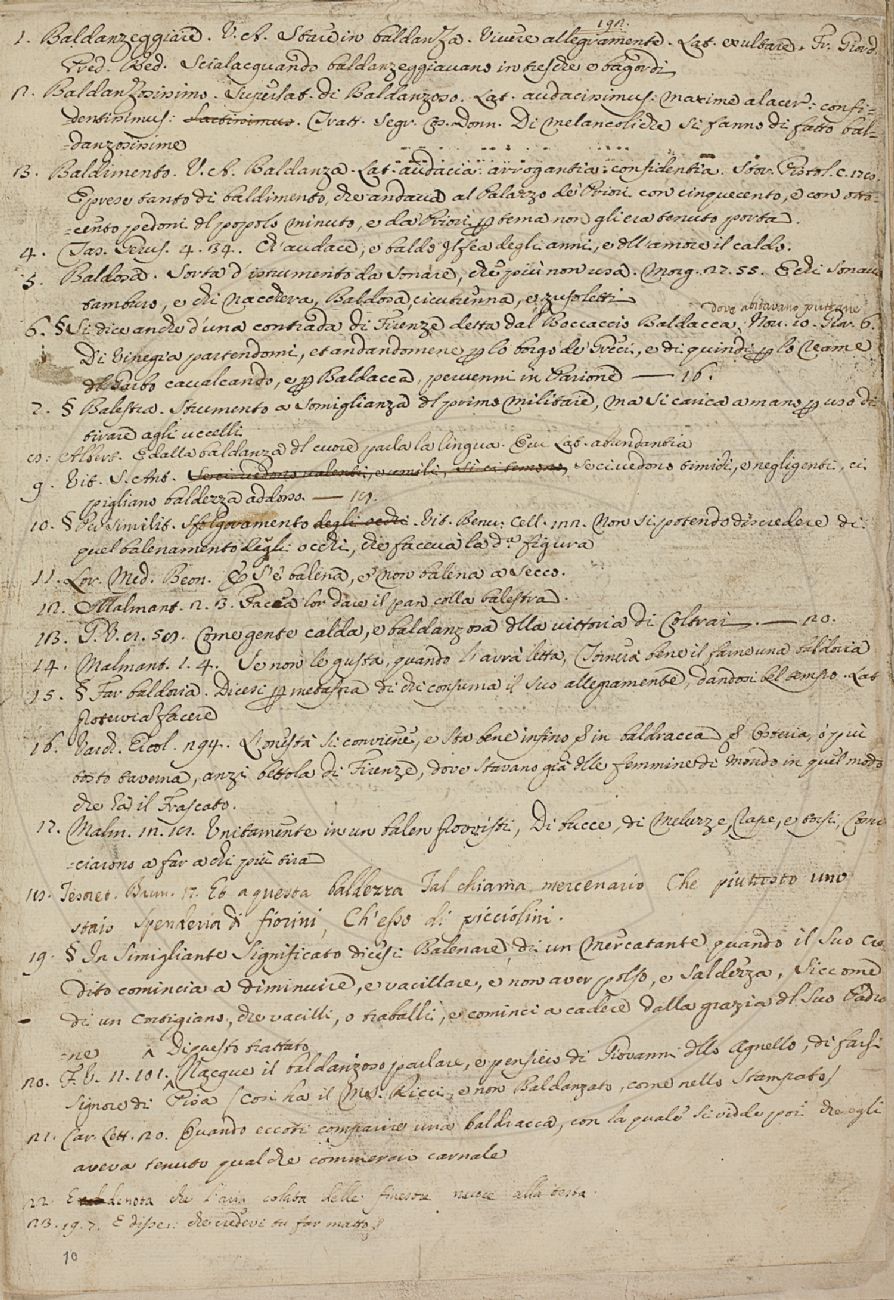 191.
1. Baldanzeggiare. V. A. Stare in baldanza. Vivere allegramente. Lat. exultare. Fr. Giord.
Pred. Red. Scialacquando baldanzeggiavano in tresche e bagordi
2. Baldanzosissimo. Superlat. di Baldanzoso. Lat. audacissimus: maxime alacer: confi-
dentissimus: Tratt. Segr. cos. Donn. Di melancoliche si fanno di fatto bal-
-danzosissime
13. Baldimento. V. A. Baldanza. Lat. audacia: arrogantia: confidentia. Stor. Pistol. c. 170.
E prese tanto di baldimento, che andava al Palazzo de' Priori con cinquecento, e con otto-
-cento pedoni del popolo minuto, e da' Priori p tema non gli era tenuto porta.
4. Tass. Gerus. 4. 34. Ed audace, e baldo Il fea degli anni, e dell'amore il caldo.
5. Baldosa. Sorta d'istrumento da sonare, che più non usa. Morg. 27. 55. E chi sonava
tamburo, e chi nacchera, Baldosa, cicutrenna, e zufoletti
dove abitavano puttane
6. § Si dice anche d'una contrada di Firenze detta dal Boccaccio Baldacca. Nov. 10. Gior. 6.
Di Vinegia partendomi, et andandomene p lo borgo de' Greci, e di quindi p lo reame
del Garbo cavalcando, e p Baldacca, pervenni in Parione — 16.
7. § Balestra. Strumento a somiglianza del primo militare, ma si carica a mano p uso di
tirare agli uccelli
Albert. E dalla baldanza del cuore parla la lingua. Lat. abundantia
9. Vit. S. Ant. Se ci vedono timidi, e negligenti, ci
pigliano baldezza addosso. —
10. § Per similit. Sfolgoramento degli occhi Vit. Benv. Cell. Non si potendo discredere di
quel balenamento degli occhi, che faceva la d.ª figura
11. Lor. Med. Beon. E s'è balena, e' non balena a secco.
12. Malmant. 2. 3. Faccia lor dare il pan colla balestra.
13. Come gente calda, e baldanzosa della vittoria di Coltrai. — 20.
14. Malmant. 1. 4. Se non le gusta, quando l'avrà letta, Tornerà bene il farne una baldoria
15. § Far baldoria. Dicesi p metafora di chi consuma il suo allegramente, dandosi bel tempo. Lat.
facere
16. Varch. Ercol. 294. L'onestà si conviene, e sta bene infino in baldracca osteria, o più
tosto taverna, anzi bettola di Firenze, dove stavano già delle femmine di mondo in quel modo
che era il Frascato.
17. Malm. Unitamente in un balen Di bucce, di meluzze, rape, e torsi, Comin-
-ciarono a far a chi più tira
Tesoret. Brun. 17. Et a questa baldezza Tal chiama mercenario Che piuttosto uno
staio Spenderia di fiorini, Ch'esso di picciolini.
19. § In simigliante significato dicesi Balenare, di un Mercatante quando il suo cre-
dito comincia a diminuire, e vacillare, e non aver polso, e saldezza, siccome
di un cortigiano, che vacilli, o traballi, e cominci a cadere dalla grazia del suo Padro-
-ne
Di questo trattato
20. F. V. 11. 101. Nacque il baldanzoso parlare, e pensiero di Giovanni dello Agnello, di farsi
signore di Pisa (Così ha il Ms. Ricci, e non Baldanzato, come nello Stampato)
21. Car. Lett. 20. Quando eccoti comparire una baldracca, con la quale si vidde poi che egli
aveva tenuto qualche commercio carnale
22. E denota che l'aria colata delle finestre nuoce alla testa
23. 19. 7. E disse: che credevi tu far matto?
10